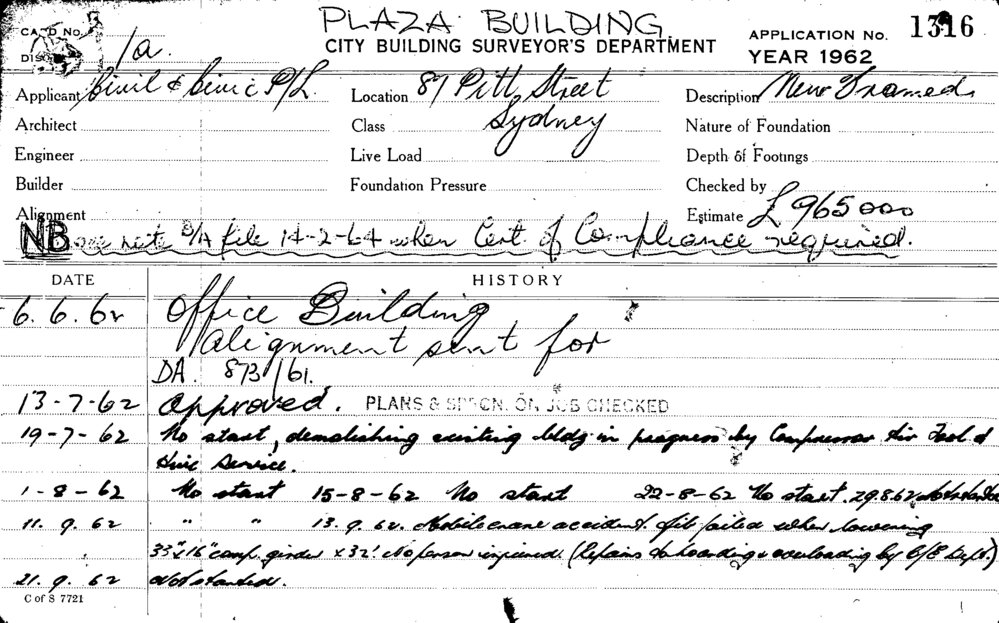 PLAZA BUILDING
CARD No. 1a.
CITY BUILDING SURVEYOR'S DEPARTMENT
APPLICATION No. 1316
YEAR 1962
Applicant Civil & Civic P/L. Location 87 Pitt Street Description New Framed
Architect Class Sydney Nature of Foundation
Engineer Live Load Depth of Footings
Builder Foundation Pressure Checked by
Alignment Estimate £965000
NB note D/A file 14-2-64 when Cert. of Compliance required.
DATE HISTORY
6.6.62 Office Building
Alignment sent for
DA. 873/61.
13-7-62 Approved. PLANS & SPECN. ON JOB CHECKED
19-7-62 No start, demolishing existing bldg in progress by Compressor Air Tool &
Hire Service.
1-8-62 No start 15-8-62 No start 22-8-62 No start. 29.8.62 Not started
11.9.62 " " 13.9.62. Mobile crane accident. Jib failed when lowering
33"x16" comp. girder x 32'. No person injured. (Repairs to hoarding & overloading by C/E Dept.)
21.9.62 Not started.
C of S 7721